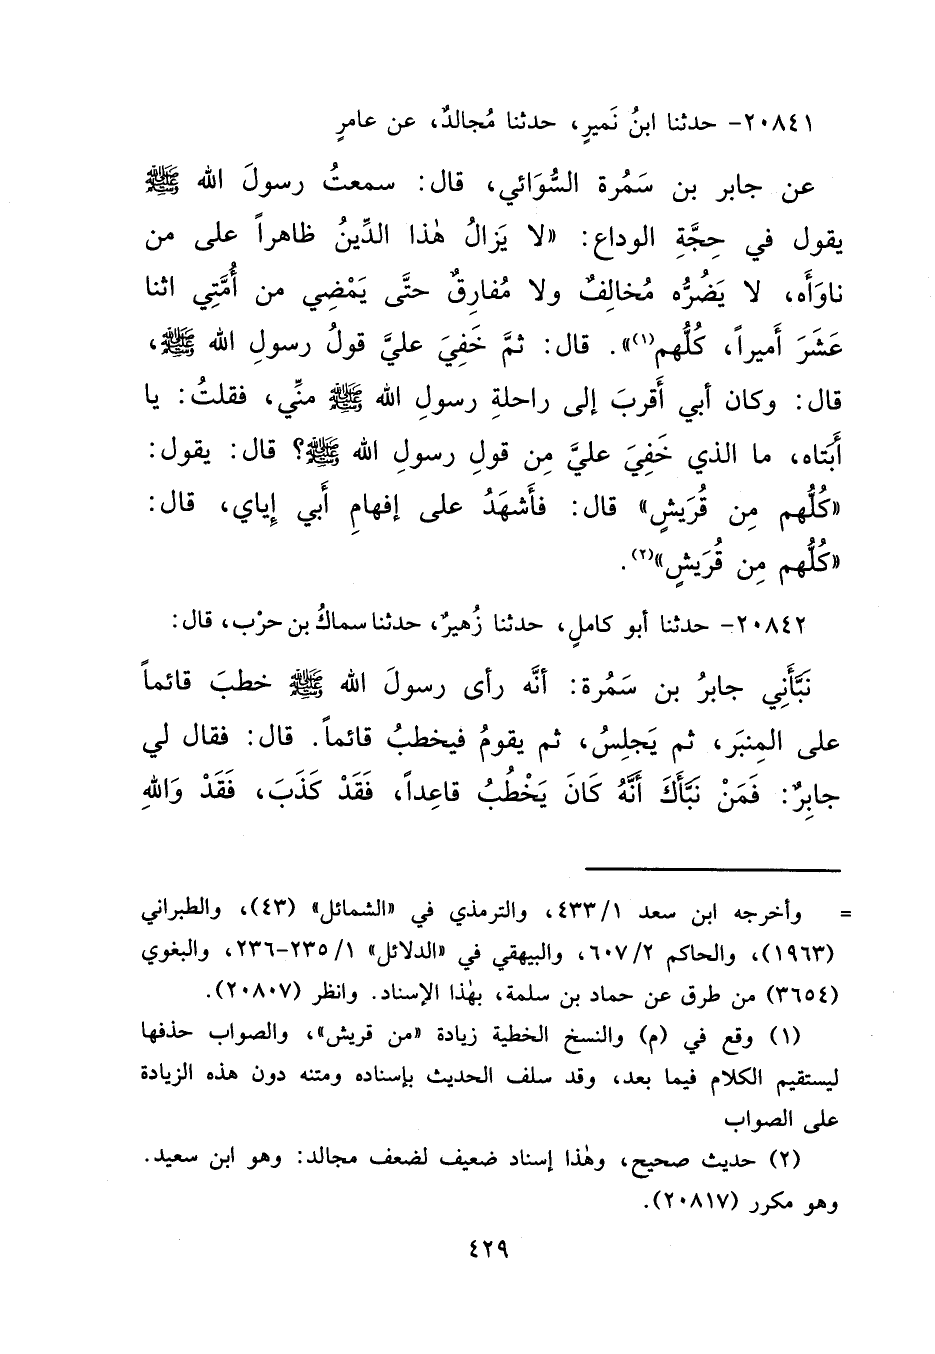 ٢٠٨٤١- حدثنا ابنُ نَميرٍ، حدثنا مُجالدٌ، عن عامرٍ
عن جابر بن سَمُرة السُّوَائي، قال: سمعتُ رسولَ الله ﷺ
يقول في حِجَّةِ الوداع: «لا يَزالُ هٰذا الدِّينُ ظاهراً على من
ناوَأَه، لا يَضُرُّه مُخالِفٌ ولا مُفارِقٌ حتَّى يَمْضِي من أُمَّتِي اثنا
عَشَرَ أَميراً، كُلُّهم(١)». قال: ثمَّ خَفِيَ عليَّ قولُ رسولِ الله ﷺ،
قال: وكان أبي أَقربَ إلى راحلةِ رسولِ الله ﷺ منِّي، فقلتُ: يا
أَبَتاه، ما الذي خَفِيَ عليَّ مِن قولِ رسولِ الله ﷺ؟ قال: يقول:
«كُلُّهم مِن قُرَيشٍ» قال: فأَشهَدُ على إفهامِ أَبي إِياي، قال:
«كُلُّهم مِن قُرَيشٍ»(٢).
٢٠٨٤٢- حدثنا أبو كاملٍ، حدثنا زُهيرٌ، حدثنا سماكُ بن حرْب، قال:
نَبَّأَنِي جابرُ بن سَمُرة: أنَّه رأى رسولَ الله ﷺ خطبَ قائماً
على المِنبَر، ثم يَجلِسُ، ثم يقومُ فيخطبُ قائماً. قال: فقال لي
جابِرٌ: فَمَنْ نَبَّأَكَ أَنَّهُ كَانَ يَخْطُبُ قاعِداً، فَقَدْ كَذَبَ، فَقَدْ وَاللهِ
= وأخرجه ابن سعد ٤٣٣/١، والترمذي في «الشمائل» (٤٣)، والطبراني
(١٩٦٣)، والحاكم ٦٠٧/٢، والبيهقي في «الدلائل» ٢٣٥/١-٢٣٦، والبغوي
(٣٦٥٤) من طرق عن حماد بن سلمة، بهٰذا الإسناد. وانظر (٢٠٨٠٧).
(١) وقع في (م) والنسخ الخطية زيادة «من قريش»، والصواب حذفها
ليستقيم الكلام فيما بعد، وقد سلف الحديث بإسناده ومتنه دون هذه الزيادة
على الصواب
(٢) حديث صحيح، وهٰذا إسناد ضعيف لضعف مجالد: وهو ابن سعيد.
وهو مكرر (٢٠٨١٧).
٤٢٩